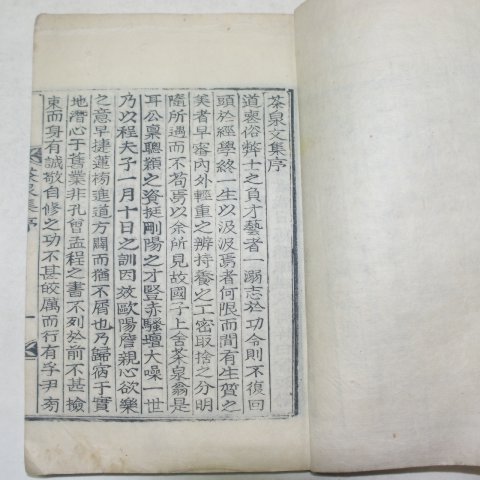 茶泉文集序
道喪俗弊士之負才藝者一溺志於功令則不復回
頭於經學終一生以汲汲焉者何限而間有生質之
美者早審內外輕重之辨持養之工密取捨之分明
隨所遇而不苟焉以余所見故國子上舍茶泉翁是
耳公稟聰穎之資挺剛陽之才豎赤騷壇大噪一世
乃以程夫子一月十日之訓因玆歐陽詹親心欲樂
之意早捷蓮榜進道方闢而猶不屑也乃歸病于實
地潛心于舊業非孔曾孟程之書不列於前不甚撿
束而身有誠敬自修之功不甚皎厲而行有孚尹旁
茶泉集序
一